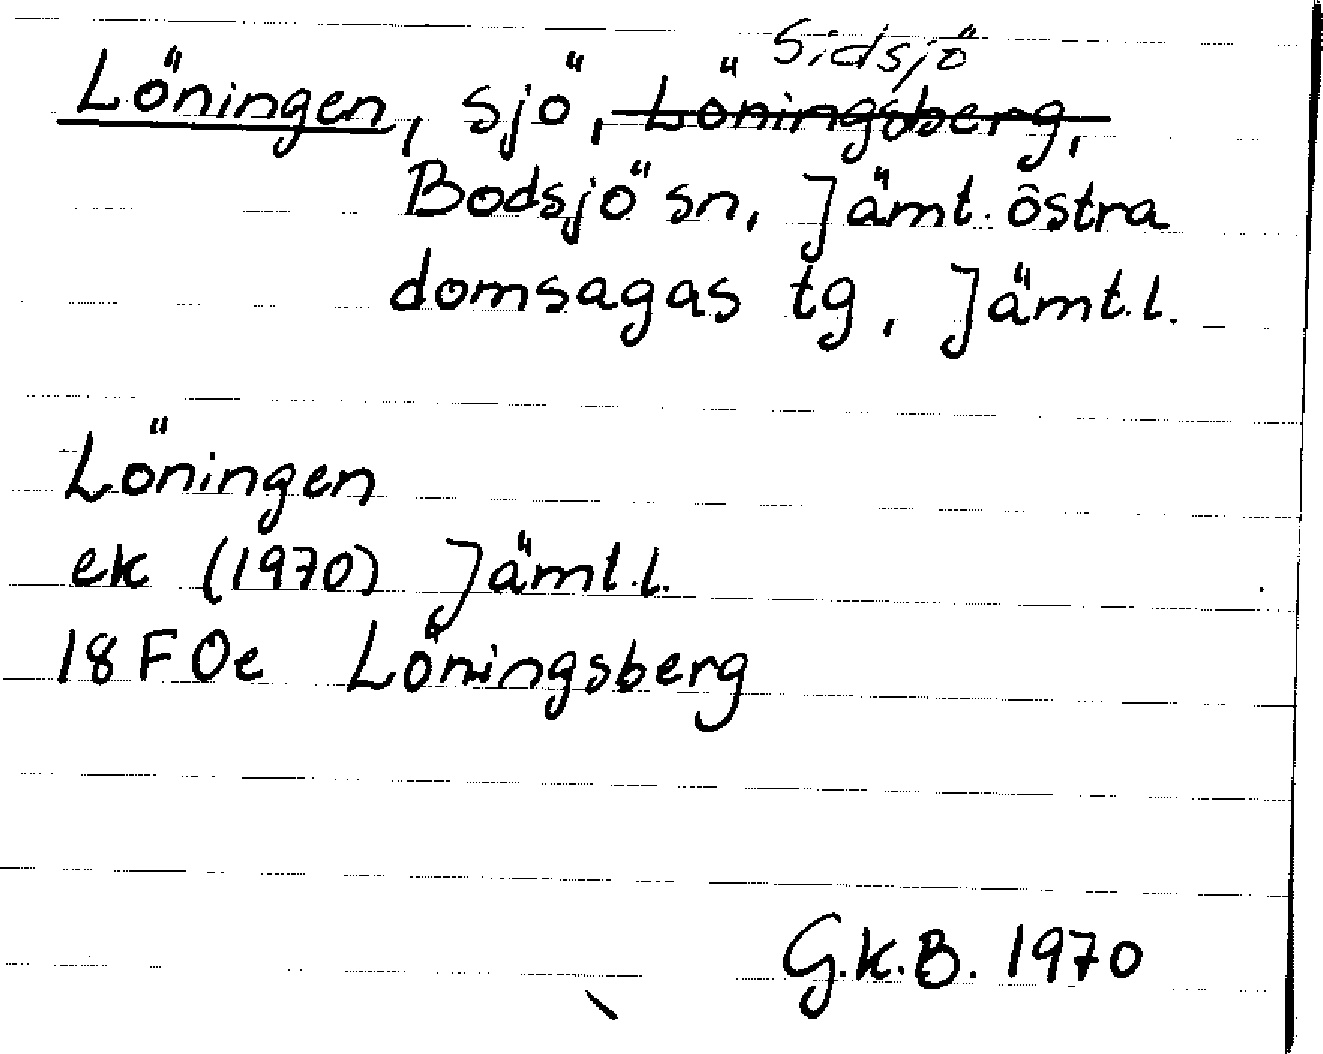 Sidsjö
Löningen, sjö, Löningsberg,
Bodsjö sn, Jämt. östra
domsagas tg, Jämt.l.
Löningen
ek (1970) Jämt.l.
18F0e Löningsberg
G.K.B. 1970